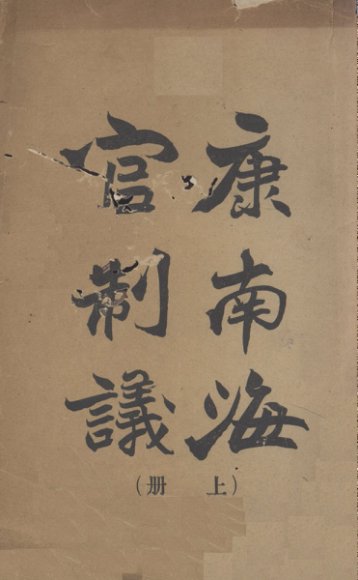 康南海
官制議
（上册）